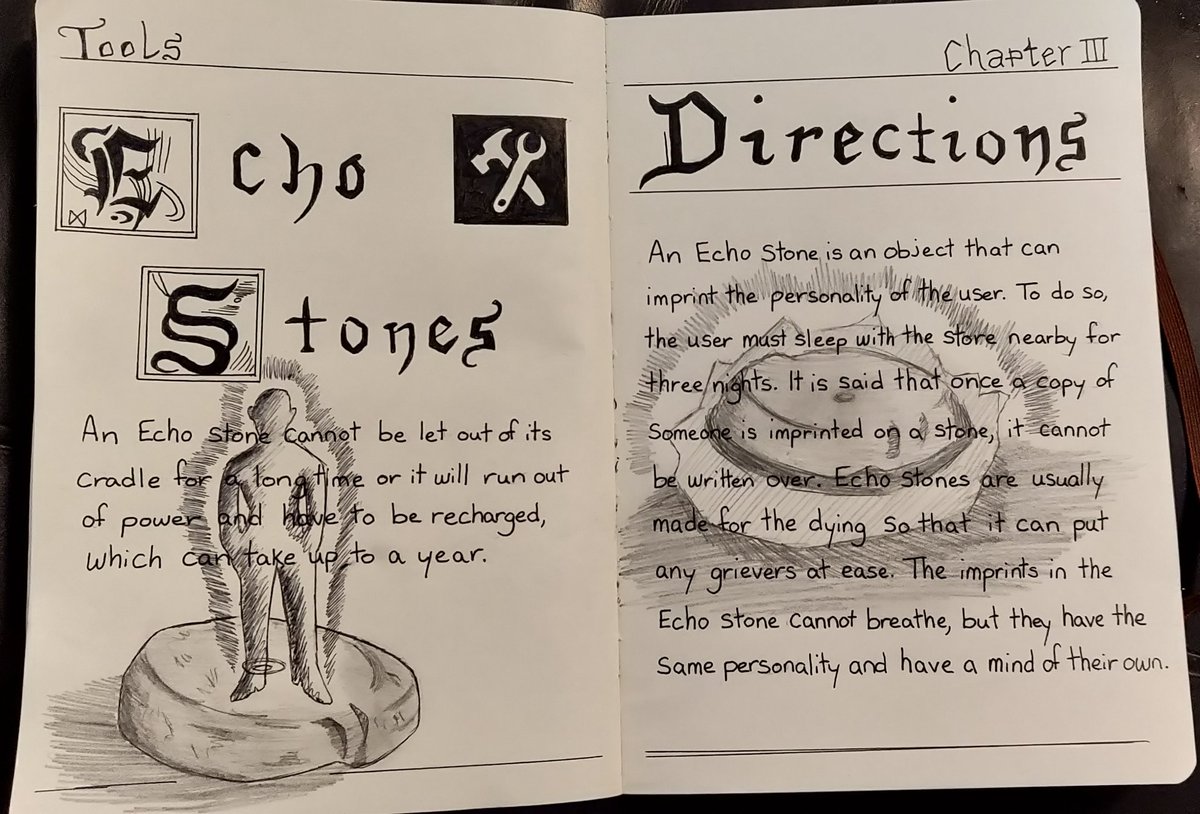 Tools
Echo
Stones
An Echo Stone cannot be let out of its
cradle for a long time or it will run out
of power and have to be recharged,
which can take up to a year.
Chapter III
Directions
An Echo Stone is an object that can
imprint the personality of the user. To do so,
the user must sleep with the stone nearby for
three nights. It is said that once a copy of
Someone is imprinted on a stone, it cannot
be written over. Echo Stones are usually
made for the dying so that it can put
any grievers at ease. The imprints in the
Echo Stone cannot breathe, but they have the
same personality and have a mind of their own.